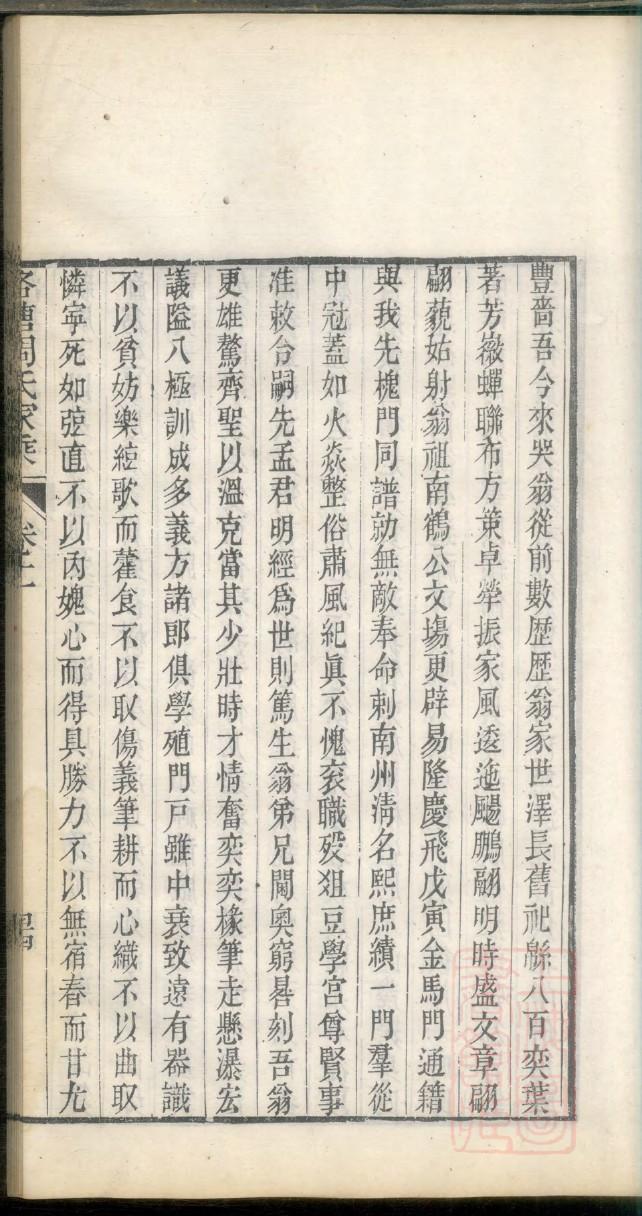 豐嗇吾今來哭翁從前數歷歷翁家世澤長舊祀緜八百奕葉
著芳徽蟬聯布方策卓犖振家風逶迤颺鵬翮明時盛文章翩
翩藐姑射翁祖南鶴公文塲更辟易隆慶飛戊寅金馬門通籍
與我先槐門同譜勍無敵奉命刺南州淸名熙庶績一門羣從
中冠蓋如火焱整俗肅風紀眞不愧袞職歿俎豆學宮尊賢事
准敕台嗣先孟君明經爲世則篤生翁弟兄閫奧窮晷刻吾翁
更雄驁齊聖以溫克當其少壯時才情奮奕奕椽筆走懸瀑宏
議隘八極訓成多義方諸郎俱學殖門戸雖中衰致遠有器識
不以貧妨樂絃歌而藿食不以取傷義筆耕而心織不以曲取
憐寧死如弦直不以丙媿心而得具勝力不以無宿舂而甘尢
洛曹周氏家乘
卷十二